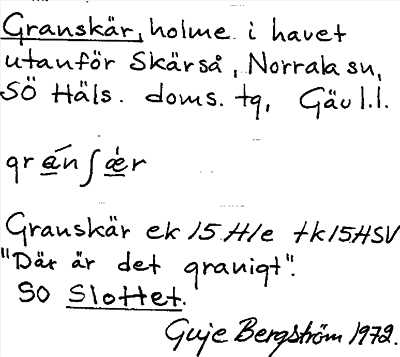 Granskär, holme i havet
utanför Skärså, Norrala sn,
SÖ Häls. doms. tg, Gävl.l.
grán∫ǽr
Granskär ek 15 H1e tk15HSV
"Där är det granigt".
SO Slottet.
Guje Bergström 1972.